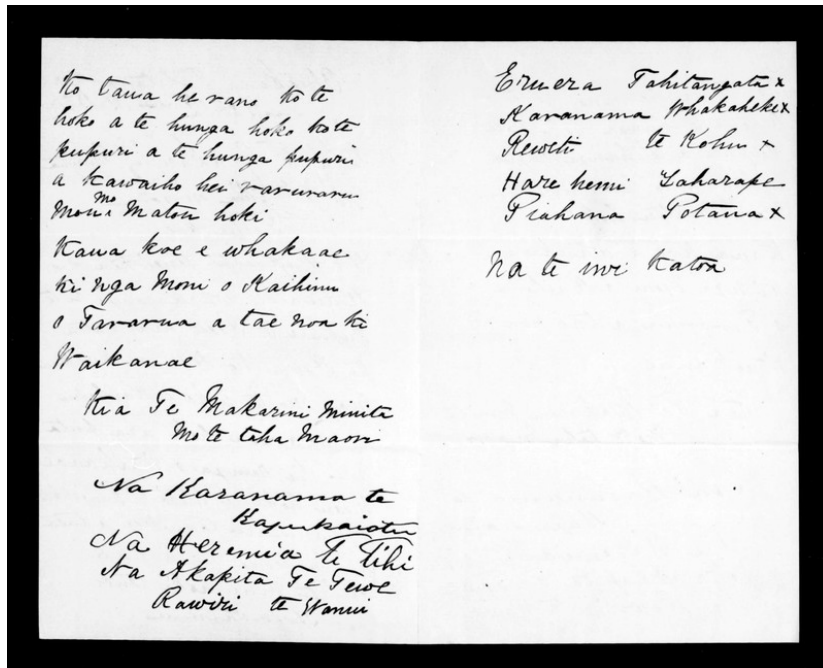 Ko taua he rano ko te
hoko a te hunga hoko ko te
pupuri a te hunga pupuri
a kawaiho hei raruraru
Mou mo Matou hoki
Kaua koe e whakaae
ki nga Moni o Kaihinu
o Tararua a tae noa ki
Waikanae
Kia Te Makarini Minita
Mo te taha Maori
Na Karanama te
Kapukaiotu
Na Heremia Te Tihi
Na Akapita Te Tewe
Rawiri te Wanui
Eruera Tahitangata x
Karanama Whakaheke x
Reweti te Kohu x
Hare hemi Taharape
Piahana Potana x
Na te iwi katoa